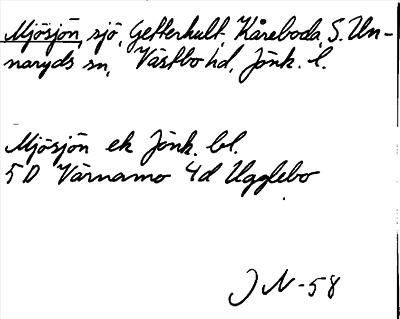 Mjösjön, sjö, Getterhult, Kåreboda, S. Un-
naryds sn, Västbo hd, Jönk. l.
Mjösjön ek Jönk. bl.
5 D Värnamo 4d Ugglebo
J N -58